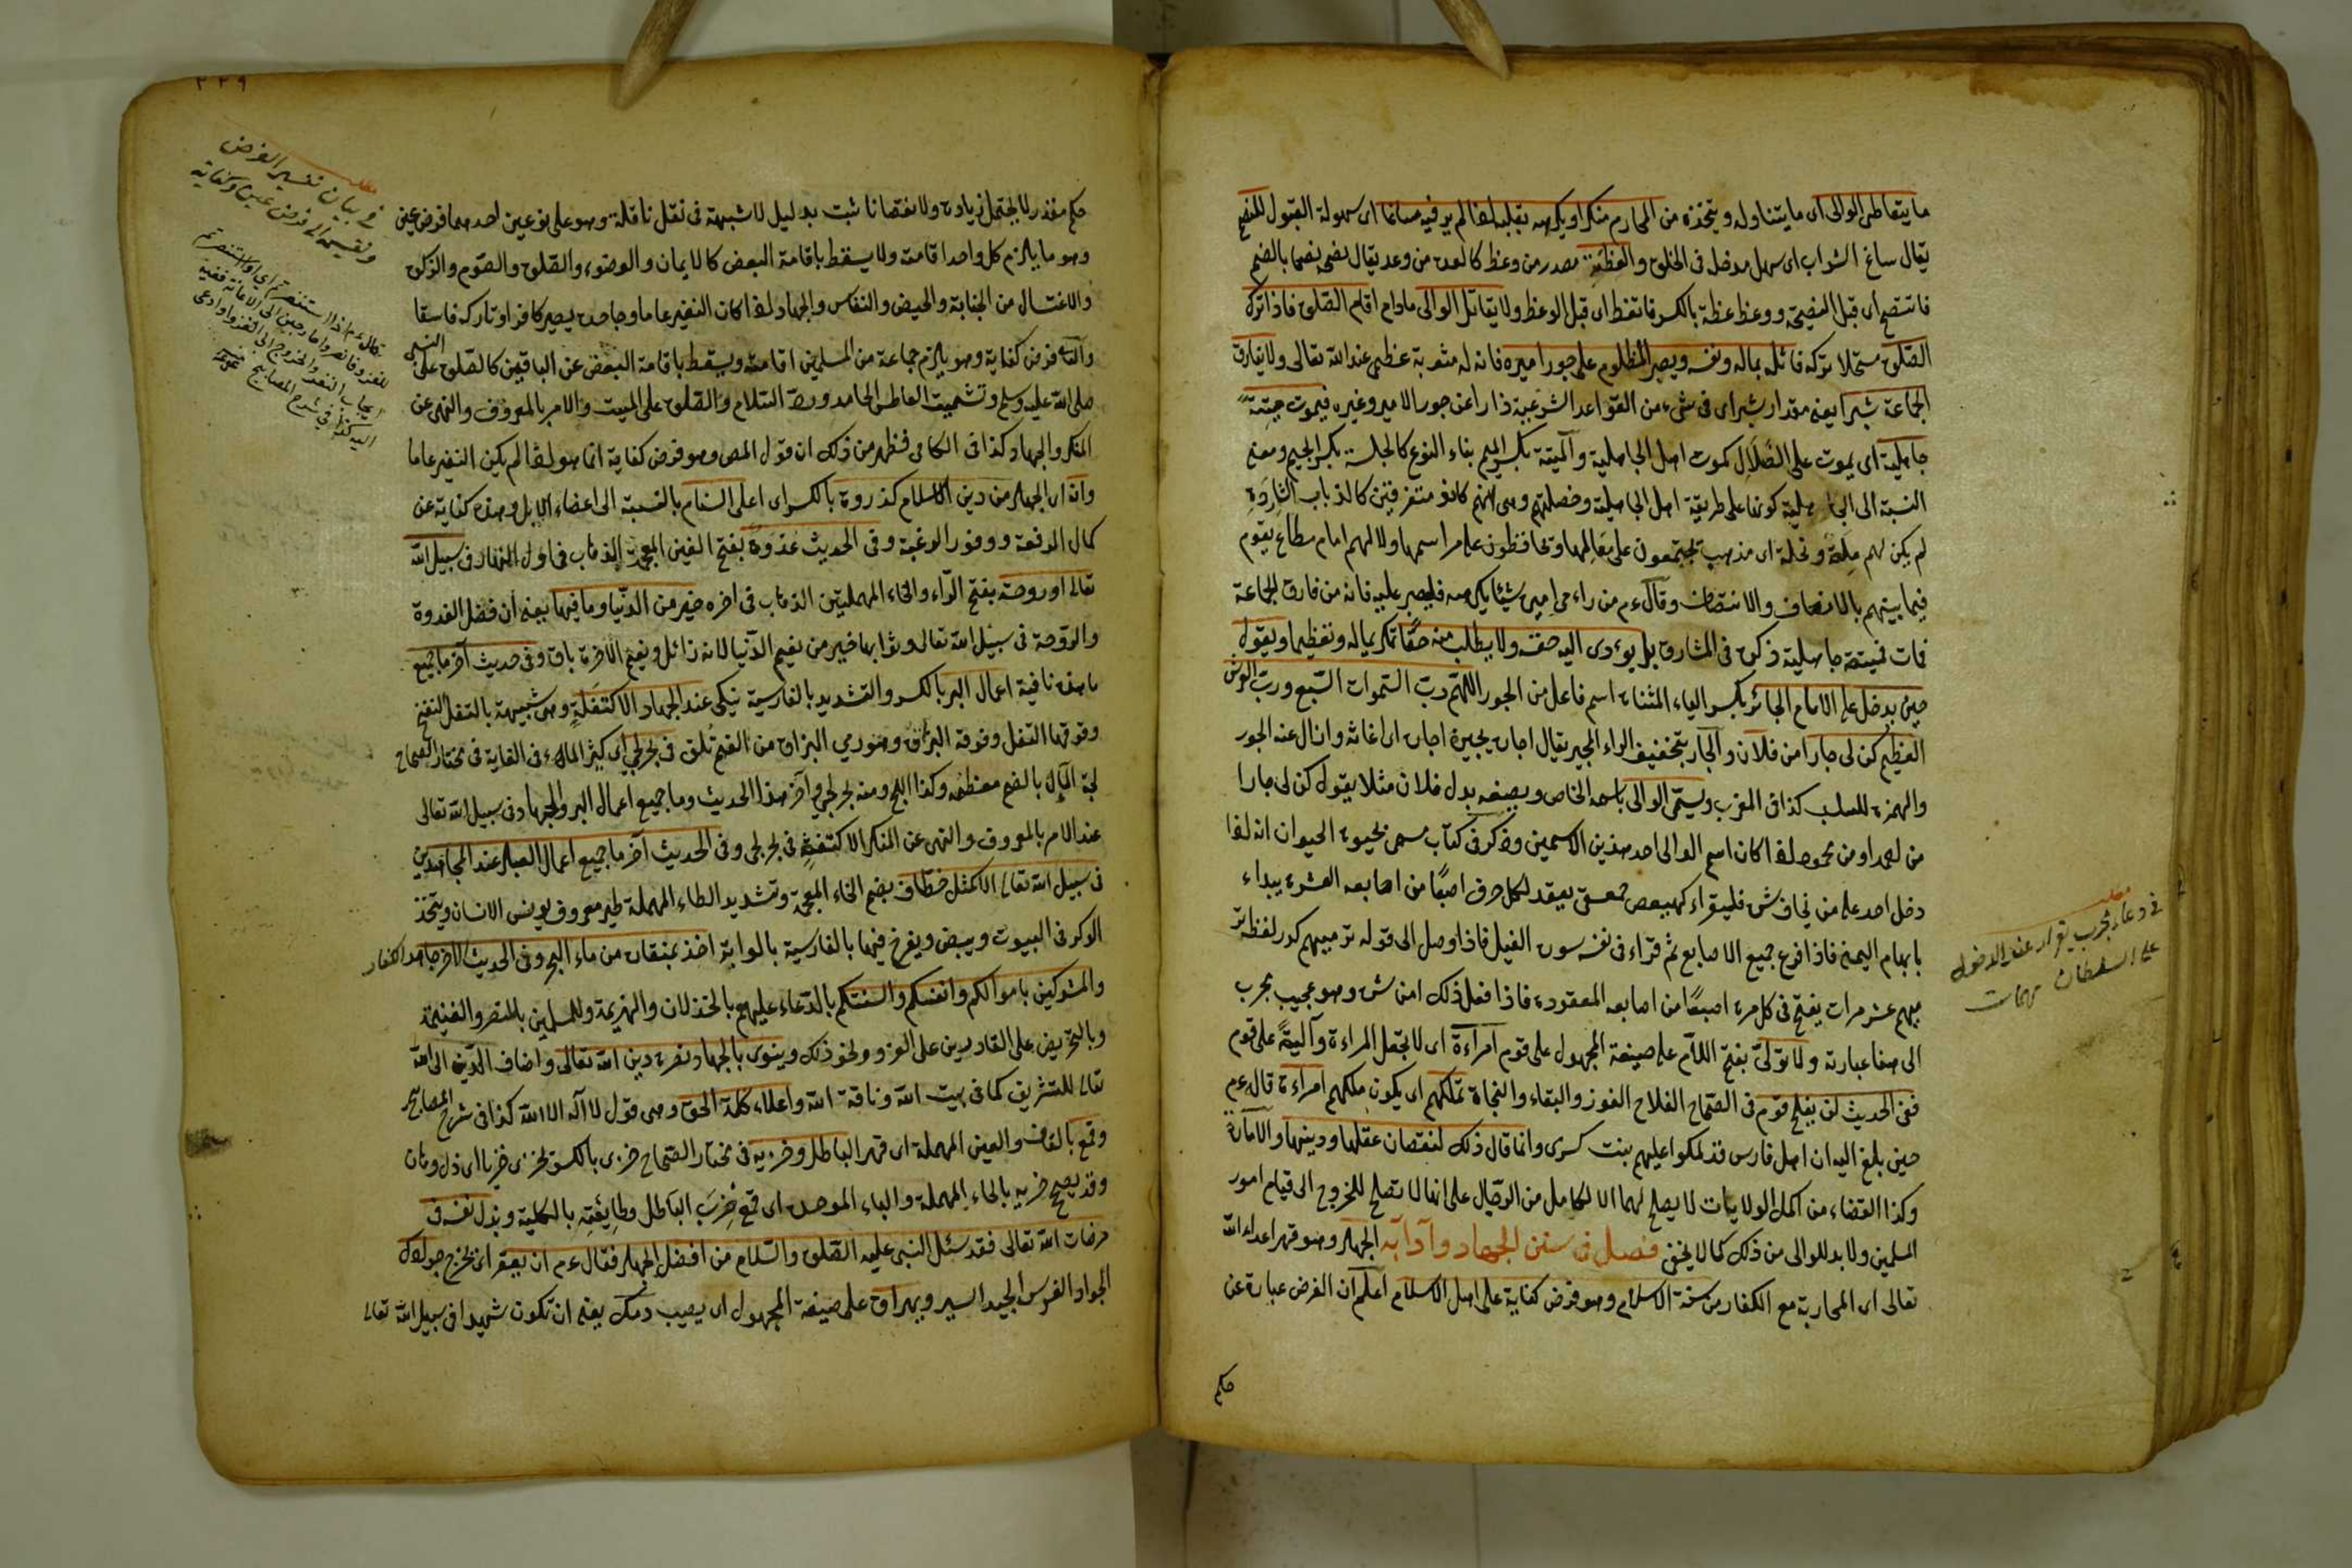 ما يتعاطى الوالى اى ما يتناوله ويتخذه من المحارم منكرا ويكرهه بقلبه اذا لم ير فيه مساغا اى سهولة القبول للنصح
يقال ساغ الشراب اى سهل مدخله فى الحلق والعظة مصدر من وعظ كالعدة من وعد يقال نصحه نصحا بالضم
فانتصح اى قبل النصيحة ووعظ عظة بالكسر فاتعظ اى قبل الوعظ ولا يقاتل الوالى مادام اقام الصلوة فاذا ترك
الصلوة مستحلا تركه قاتله بماله ونفسه ويصبر المظلوم على جور اميره فانه له مثوبة عظيم عند الله تعالى ولا يفارق
الجماعة شبرا يعنى مقدار شبر اى فى شىء من القواعد الشرعية ذارا عن جور الامير وغيره فيموت ميتة
جاهلية اى يموت على الضلال كموت اهل الجاهلية والميتة بكسر الميم بناء النوع كالجلسة بكسر الجيم ومعنى
النسبة الى الجاهلية كونها على طريقة اهل الجاهلية وخصلتهم وهى انهم كانوا متفرقين كالذباب الشاردة
لم يكن لهم ملة ونحلة اى مذهب تجتمعون على معالمها وتحافظون على مراسمها ولا لهم امام مطاع يقوم
فيما بينهم بالانصاف والانتصاف وقال ءم من راء من اميره شيئا يكرهه فليصبر عليه فانه من فارق الجماعة
فمات فميتته جاهلية ذكره فى المشارق بل يؤدى اليه حقه ولا يطلب منه حقا تكريما له وتعظيما ويقول
حين يدخل على الامام الجائر بكسر الياء المثناة اسم فاعل من الجور اللهم رب السموات السبع ورب العرش
العظيم كن لى جارا من فلان والجار بتخفيف الراء المجير يقال اجاره يجيره اجارة اى اغاثه وازال عنه الجور
والهمزة للسلب كذا فى المغرب ويسمى الوالى باسمه الخاص ويصفه بدل فلان مثلا يقول كن لى جارا
من احمد او من محمود اذا كان اسم الوالى احد هذين الاسمين وذكر فى كتاب مسمى بحيوة الحيوان انه اذا
دخل احد على من يخاف شره فليقراء كهيعص حمعسق يعقد لكل حرف اصبعا من اصابعه العشرة يبداء
بابهام اليمنى فاذا فرغ جميع الاصابع ثم قراء فى نفسه سورة الفيل فاذا وصل الى قوله ترميهم كرر لفظ تر
ميهم عشر مرات يفتح فى كل مرة اصبعا من اصابعه المعقودة فاذا فعل ذلك امن شره وهو عجيب مجرب
الى هنا عبارته ولا تولى بفتح اللام على صيغة المجهول على قوم امراءة اى لا تجعل المراءة والية على قوم
ففى الحديث لن يفلح قوم فى الصحاح الفلاح الفوز والبقاء والنجاة تملكهم اى يكون ملكهم امراءة قاله ءم
حين بلغ اليه ان اهل فارس قد ملكوا عليهم بنت كسرى وانما قال ذلك لنقصان عقلها ودينها والامارة
وكذا القضاء من اكمل الولايات لا يصلح لهما الا الكامل من الرجال على انها لا تصلح للخروج الى قيام امور
المسلمين ولا بد للوالى من ذلك كما لا يخفى فصل فى سنن الجهاد وآدابه الجهاد وهو قهر اعداء الله
تعالى اى المحاربة مع الكفار من سنة الاسلام وهو فرض كفاية على اهل الاسلام اعلم ان الفرض عبارة عن
حكم
مطلب
فى دعاء مجرب يقراء عند الدخول
على السلطان
٢٢٩
حكم مقدر لا يحتمل زيادة ولا نقصانا ثبت بدليل لا شبهة فى نقل ناقله وهو على نوعين احدهما فرض عين
وهو ما يلزم كل واحد اقامته ولا يسقط باقامة البعض كالايمان والوضوء والصلوة والصوم والزكوة
والاغتسال من الجنابة والحيض والنفاس والجهاد اذا كان النفير عاما وجاحده يصير كافرا وتاركه فاسقا
والثانى فرض كفاية وهو يلزم جماعة من المسلمين اقامته ويسقط باقامة البعض عن الباقين كالصلوة على النبى
صلى الله عليه وسلم وتشميت العاطس الحامد ورد السلام والصلوة على الميت والامر بالمعروف والنهى عن
المنكر والجهاد كذا فى الكافى فظهر من ذلك ان قول المص وهو فرض كفاية انما هو اذا لم يكن النفير عاما
وانه اى الجهاد من دين الاسلام كذروة بالكسر اى اعلى السنام بالنسبة الى اعضاء الابل وهذه كناية عن
كمال الرفعة ووفور الرغبة وفى الحديث غدوة بفتح الغين المعجمة الذهاب فى اول النهار فى سبيل الله
تعالى او روحة بفتح الراء والحاء المهملتين الذهاب فى اخره خير من الدنيا وما فيها يعنى ان فضل الغدوة
والروحة فى سبيل الله تعالى وثوابها خير من نعيم الدنيا لانه زائل ونعيم الآخرة باق وفى حديث آخر ما جميع
ما هذه نافية اعمال البر بالكسر والتشديد بالفارسية نيكى عند الجهاد الا كتفلة وهى شبيهة بالتفل النفخ
وفوقها التفل وفوقه البزاق وهو رمى البزاق من الفم تلق فى بحر لجى اى كثير الماء فى الغاية فى مختار الصحاح
لجة الماء بالضم معظمه وكذا اللج ومنه بحر لجى وآخر هذا الحديث وما جميع اعمال البر والجهاد فى سبيل الله تعالى
عند الامر بالمعروف والنهى عن المنكر الا كنفثة فى بحر لجى وفى الحديث آخر ما جميع اعمال العباد عند المجاهدين
فى سبيل الله تعالى الا كمثل خطاف بضم الخاء المعجمة وتشديد الطاء المهملة طير معروف يونس الانسان ويتخذ
الوكر فى البيوت ويبيض ويفرخ فيها بالفارسية بالوايه اخذ بمنقاره من ماء البحر وفى الحديث الآخر جاهدوا الكفار
والمشركين باموالكم وانفسكم والسنتكم بالدعاء عليهم بالخذلان والهزيمة وللمسلمين بالنصر والغنيمة
وبالتحريض على القادرين على الغزو ونحو ذلك وينوى بالجهاد نصرة دين الله تعالى واضاف الدين الى الله
تعالى للتشريف كما فى بيت الله وناقة الله واعلاء كلمة الحق وهى قول لا اله الا الله كذا فى شرح المصابيح
وقمع بالقاف والعين المهملة اى قهر الباطل وخزيه فى مختار الصحاح خزى بالكسر يخزى خزيا اى ذل وهان
وقد يصحح حزبه بالحاء المهملة والباء الموحدة اى قمع حزب الباطل وطايفته بالكلية وبذل نفسه فى
مرضات الله تعالى فقد سئل النبى عليه الصلوة والسلام من افضل الجهاد فقال ءم ان يعقر اى يجرح جوادك
الجواد الفرس الجيد السير ويهراق على صيغة المجهول اى يصيب دمك يعنى ان تكون شهيدا فى سبيل الله تعالى
مطلب
فى بيان تفسير الفرض
وتقسيمه الى فرض عين وكفاية